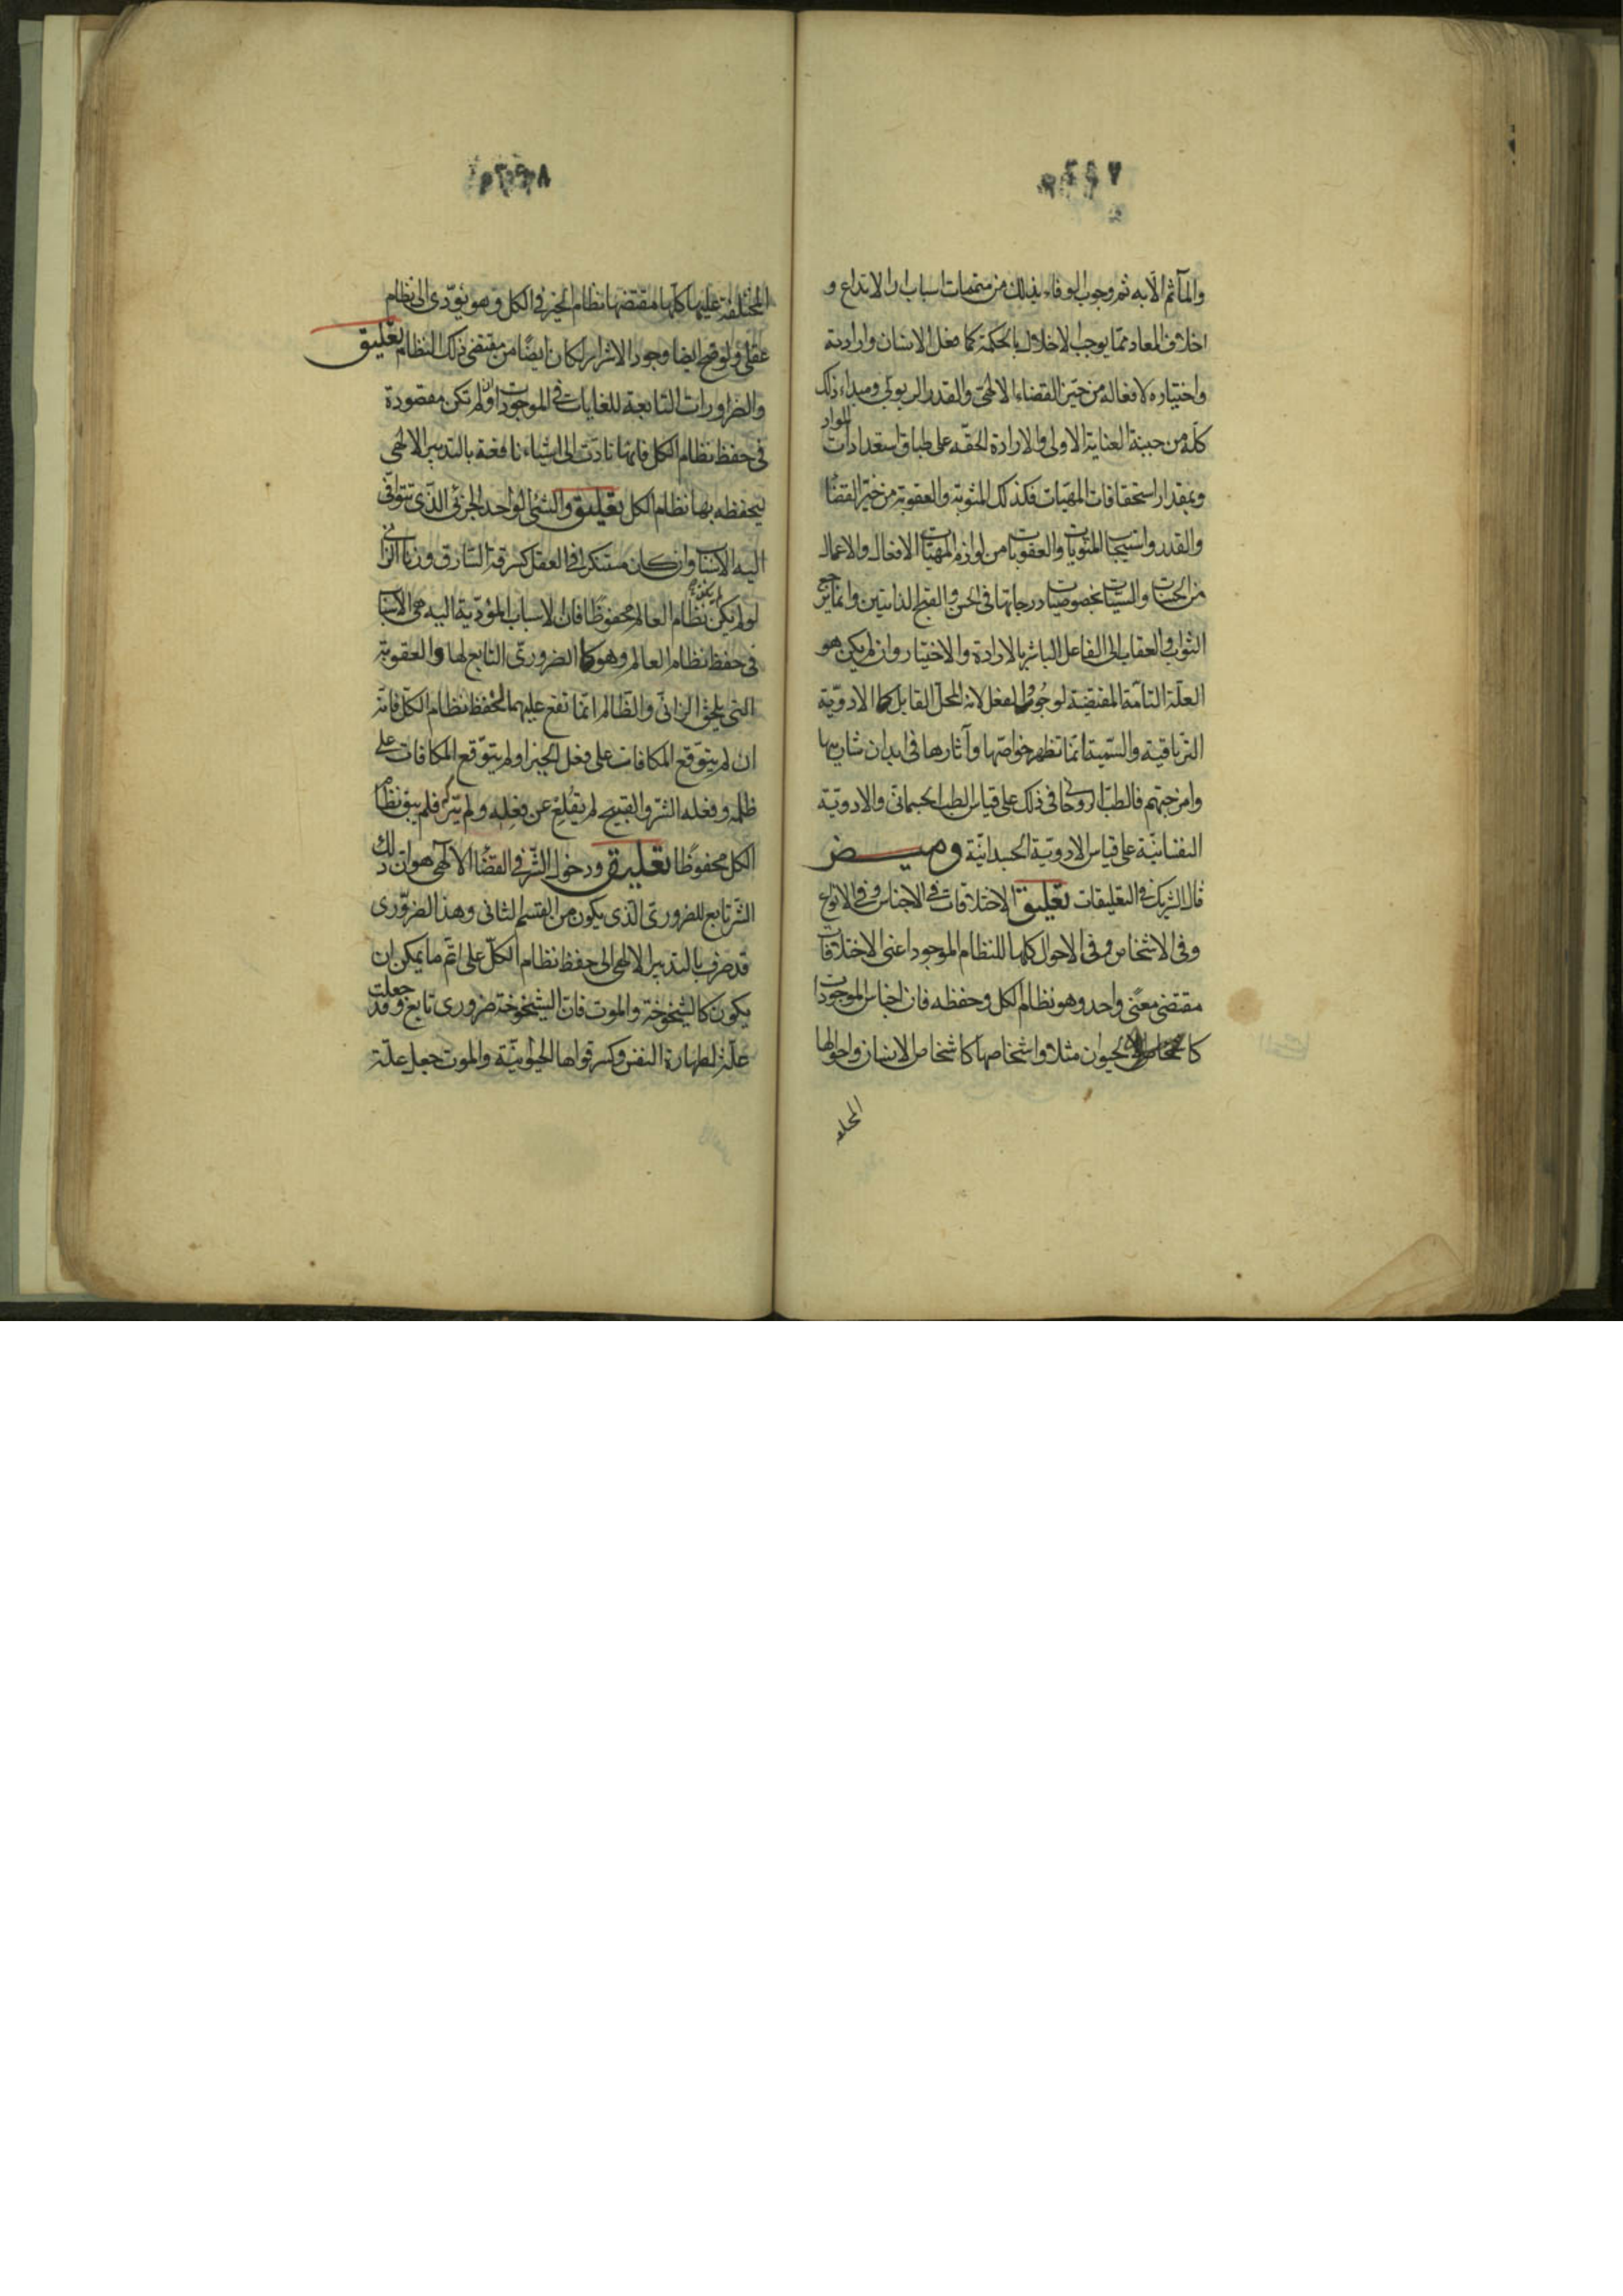 ٢٩٧
والمآثم الا به ثم وجوب الوفاء بذلك من متممات اسباب الابتداع و
اخلاف المعاد مما يوجب الاخلال بالحكمة كما فعل الانسان وارادته
واختياره لافعاله من حيّز القضاء الالهى والقدر الربوبى ومبداء ذلك
كله من جنبة العناية الاولى والارادة الحقه على طباق استعدادات المواد
وبمقدار استحقاقات المهيّات فكذلك المثوبة والعقوبة من حيّز القضاء
والقدر واستيجاب المثوبات والعقوبات من لوازم المهيات الافعال والاعمال
من الحسنات والسيئات بخصوصيات درجاتها فى الحسن والقبح الذاتيين وانما يرجع
الثواب والعقاب الى الفاعل المباشر بالارادة والاختيار وان لم يكن هو
العلّة التامّة المقتضية لوجوب الفعل لانه المحل القابل كما الادويّة
الترياقيه والسّميّة انما تظهر خواصّها وآثارها فى ابدان شاربيها
وامزجتهم فالطبّ الروحانى فى ذلك على قياس الطب الجسمانى والادويّة
النفسانيّة على قياس الادويّة الجسدانيّة وميض
قال الشريك فى التعليقات تعليق الاختلافات فى الاجناس وفى الانواع
وفى الاشخاص وفى الاحوال كلها للنظام الموجود اعنى الاختلافات
مقتضى معنًى واحد وهو نظام الكل وحفظه فان اجناس الموجودات
كالحيوان مثلا واشخاصها كاشخاص الانسان واحوالها
المختلفة
٢٩٨
المختلفة عليها كلّها مقتضها نظام الخير فى الكل وهو يؤدّى الى نظام
عقلى ولو صح ايضا وجود الاشرار لكان ايضًا من مقتضى ذلك النظام تعليق
والضرورات التابعة للغايات فى الموجودات وان لم تكن مقصودة
فى حفظ نظام الكل فانها تادّت الى اشياء نافعة بالتدبير الالهى
ليحفظه بها نظام الكل تعليق والشئ الواحد الجزئى الذى تتوافى
اليه الاسباب وان كان مستنكرا فى العقل كسرقة السّارق وزنا الزانى
لو لم يكن نظام العالم محفوظًا فان الاسباب المؤدّية اليه هى الاسباب
فى حفظ نظام العالم وهو كالضرورى التابع لها والعقوبة
التى يلحق الزانى والظالم انما تقع عليهما لحفظ نظام الكل فانه
ان لم يتوقع المكافات على فعل الخير او لم يتوقع المكافات على
ظلمه وفعله الشرّ والقبيح لم يقلع عن فعله ولم يتركه فلم يبق نظام
الكل محفوظا تعليق ودخول الشّر فى القضاء الالهى هو ان ذلك
الشّر تابع للضرورىّ الذى يكون من القسم الثانى وهذا الضرورى
قد صرف بالتدبير الالهى الى حفظ نظام الكلّ على اتم ما يمكن ان
يكون كالشيخوخة والموت فان الشيخوخة ضرورى تابع وقد جعلت
علّة لطهارة النفس وكسر قواها الحيوانيّة والموت جعل علّة